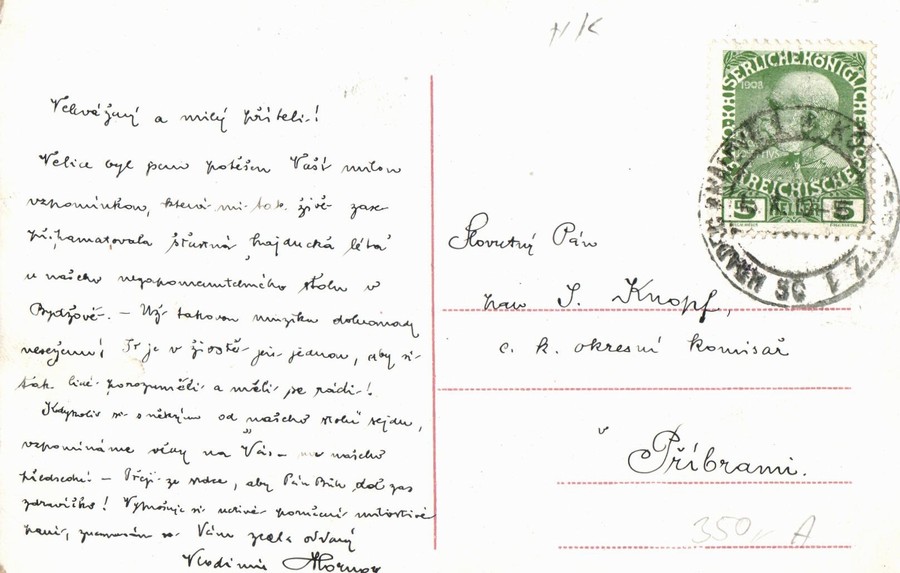 H/K
Velevážený a milý příteli!
Velice byl jsem potěšen Vaší milou
vzpomínkou, která mi tak živě zase
připamatovala šťastná "hajducká léta"
u našeho nezapomenutelného stolu v
Bydžově. – Už takovou muziku dohromady
nesejzem! To je v životě jen jednou, aby si
tak lidé porozuměli a měli se rádi!
Kdykoliv se s někým od "našeho" stolu sejdu,
vzpomínáme vždy na Vás – na našeho
předsedu! – Přeji ze srdce, aby Pán Bůh dal zas
zdravíčko! Vyřizuje si uctivé poručení milostivé
paní, znamenám se Vám zcela oddaný
Vladimír
1908
KAISERLICHE KÖNIGLICHE
ÖSTERREICHISCHE POST
5 HELLER 5
Slovutný Pán
pan J. Knopf,
c. k. okresní komisař
v
Příbrami.
350,- A